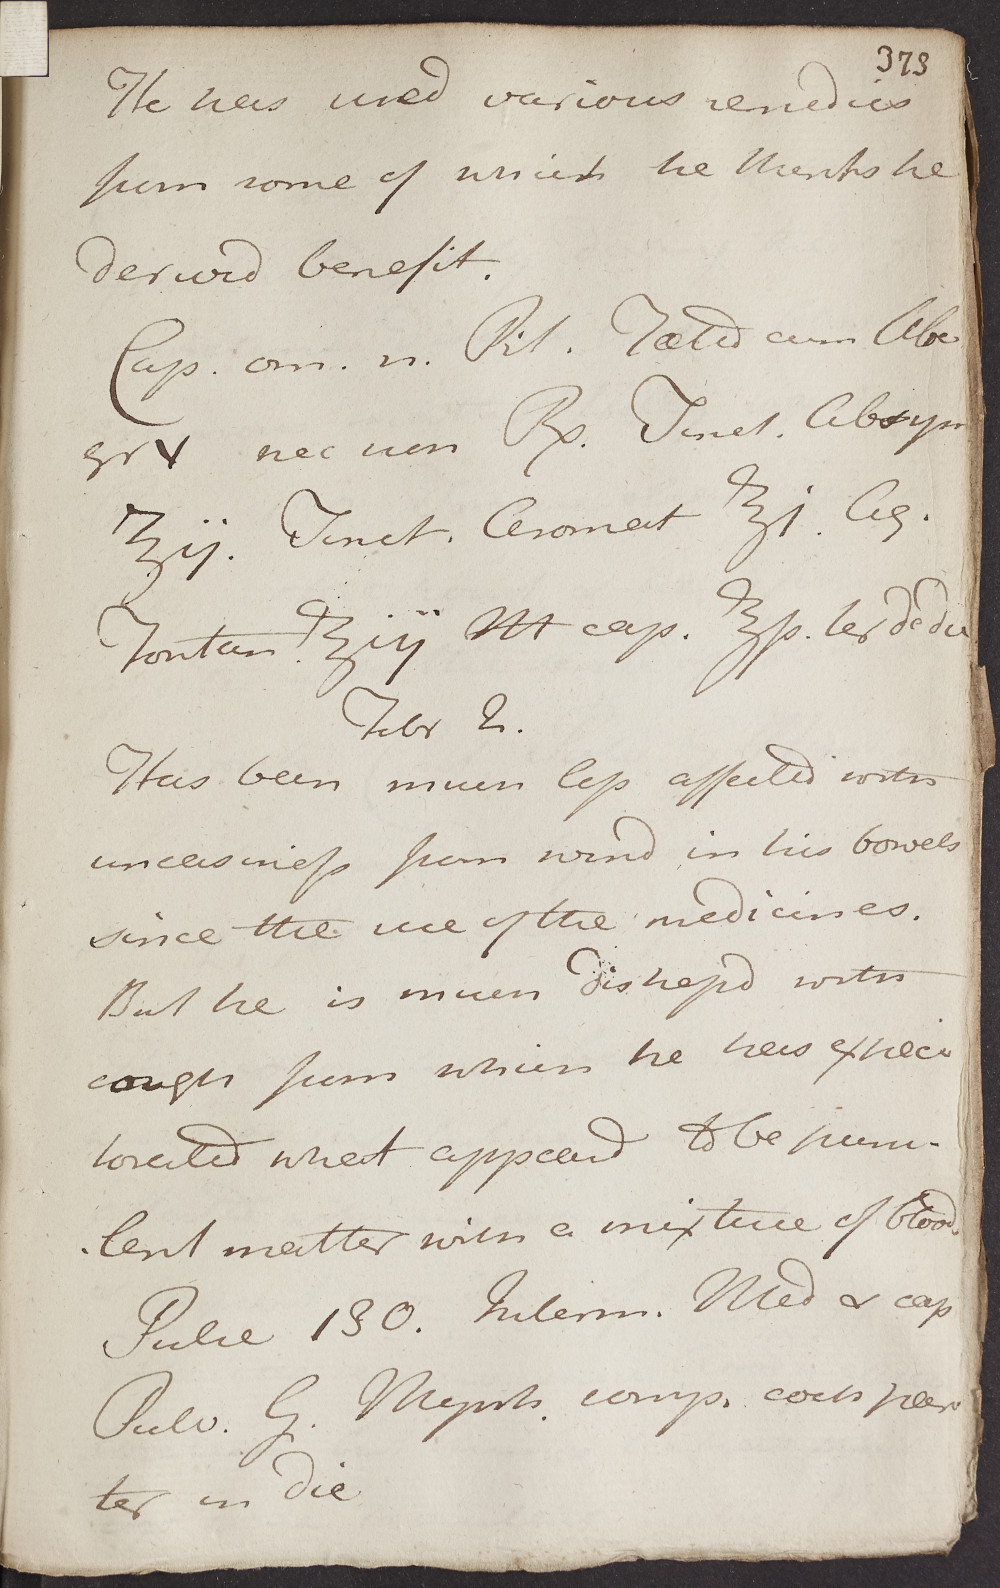 373
He has used various remedies
from some of which he thinks he
derived benefit.
Cap. om. n. Pil. Fœtid cum Aloe
gr v nec non Rx. Tinct. Absyn
ʒij. Tinct. Aromat ℥j. Aq.
Fontan. ℥iij M cap. ℥ſs. ter de die
Febr 2.
Has been much leſs affected with
uneasineſs from wind in his bowels
since the use of the medicines.
But he is much distreſs'd with
cough from which he has expec
torated what appeard to be puru-
-lent matter with a mixture of blood.
Pulse 130. Interm. Med & cap
Pulv. G. Myrrh. comp. coch parv
ter in die